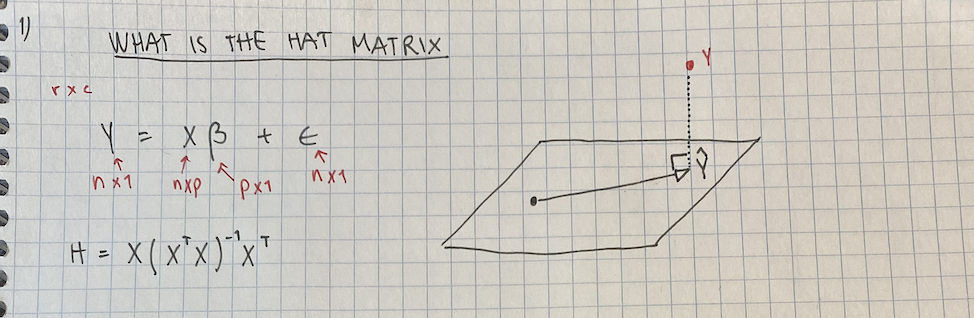 1)
WHAT IS THE HAT MATRIX
r x c
Y = Xβ + ϵ
n x 1 n x p p x 1 n x 1
H = X(XᵀX)⁻¹Xᵀ
Y
Ŷ